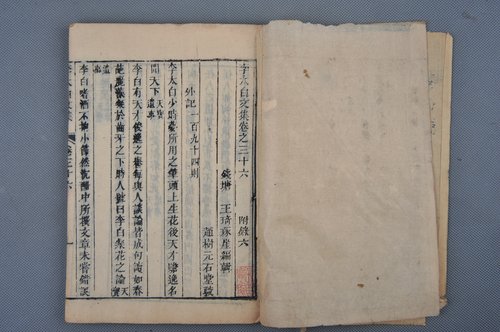 李太白文集卷之三十六　附錄六
錢塘　王琦琢崖編輯
外記一百九十四則
李太白少時夢所用之筆頭上生花後天才贍逸名
聞天下 天寶遺事
李白有天才俊逸之譽每與人談論皆成句讀如春
葩麗藻粲於齒牙之下時人號曰李白粲花之論 天寶遺
李白嗜酒不拘小節然沉酣中所撰文章未嘗錯誤